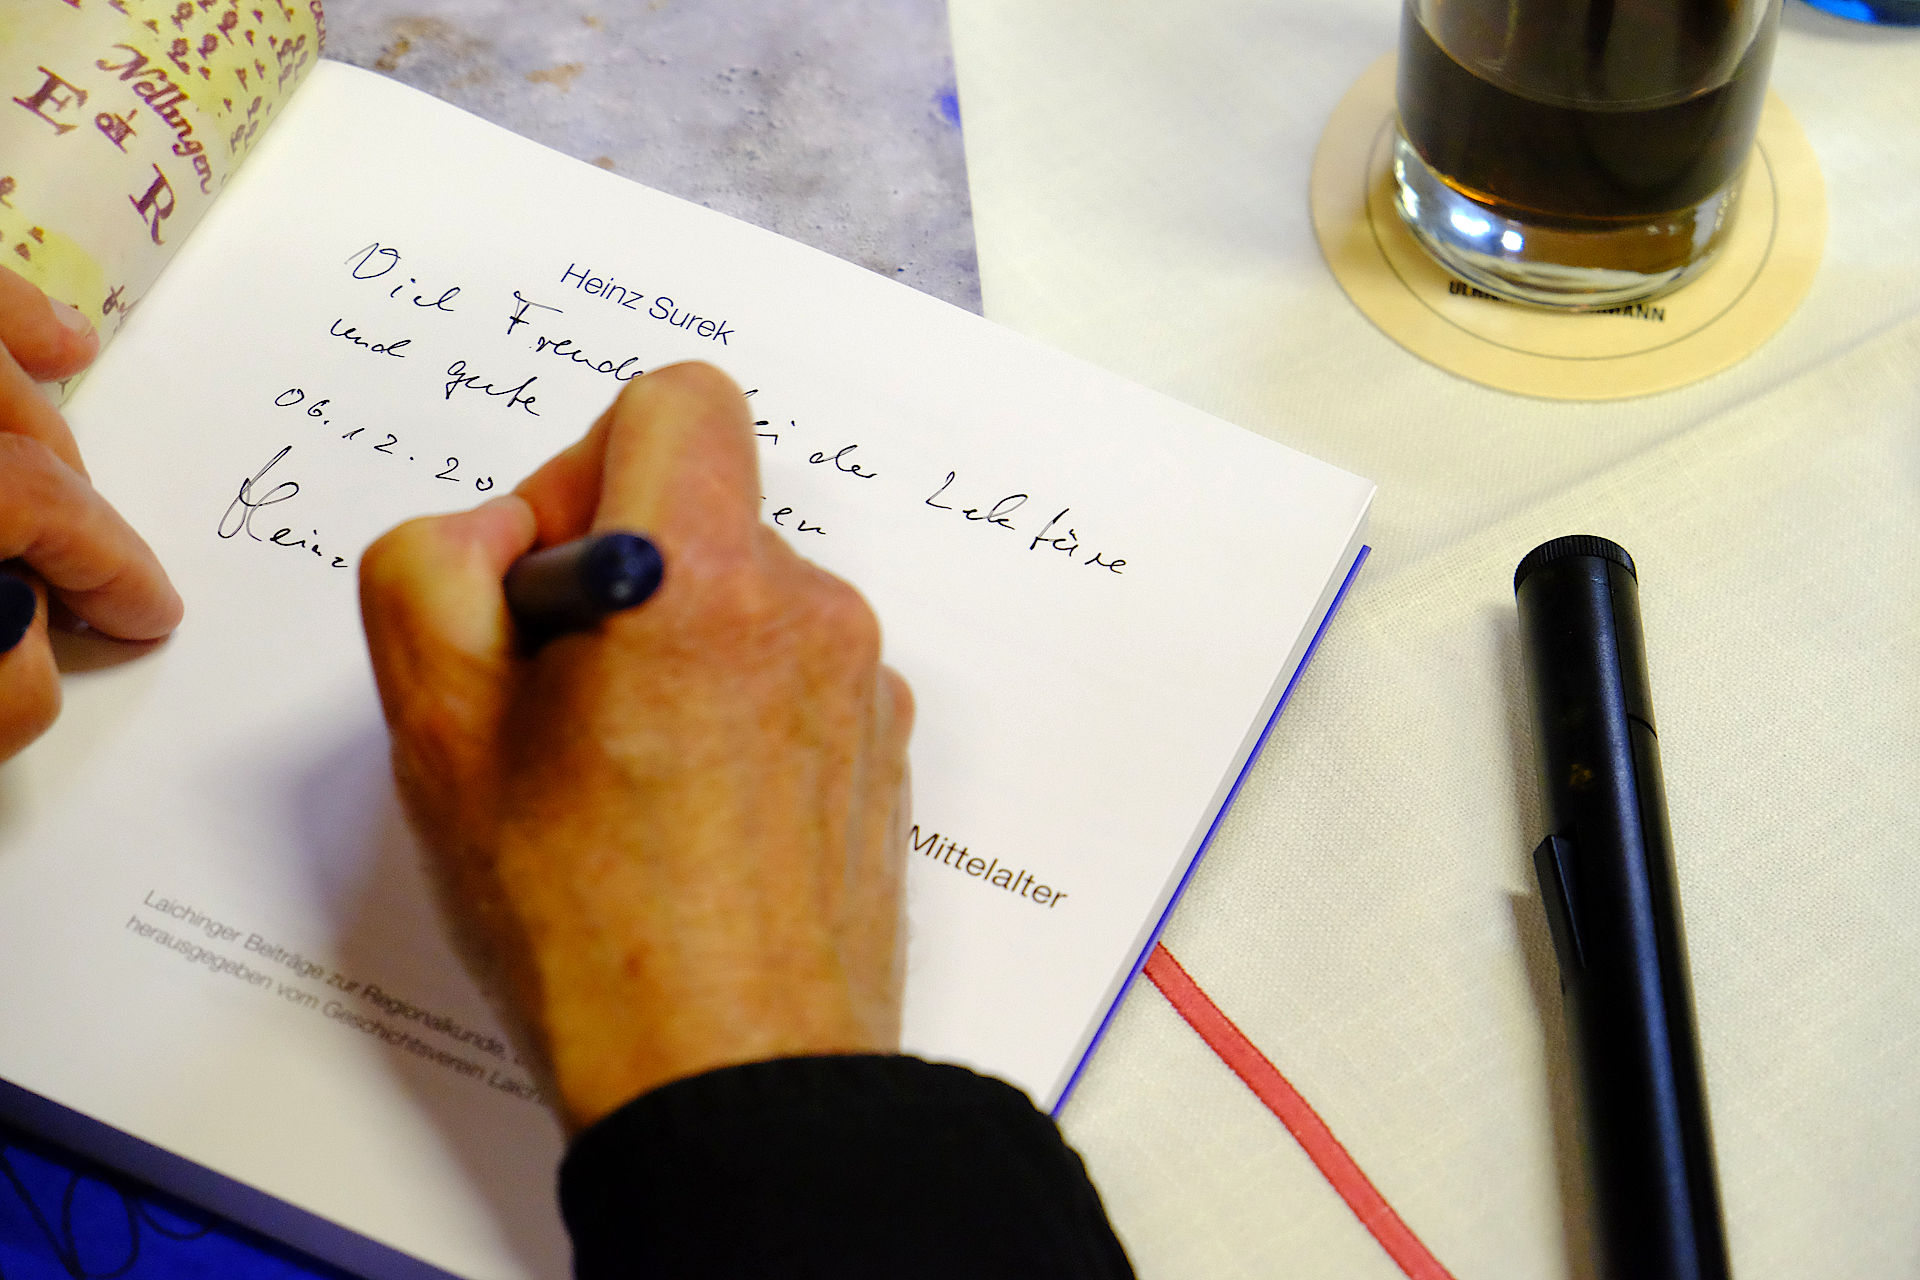 Nellingen
E
R
Heinz Surek
Viel Freude bei der Lektüre
und gute
06.12.20
Heinz
Mittelalter
Laichinger Beiträge zur Regionalkunde,
herausgegeben vom Geschichtsverein Laich